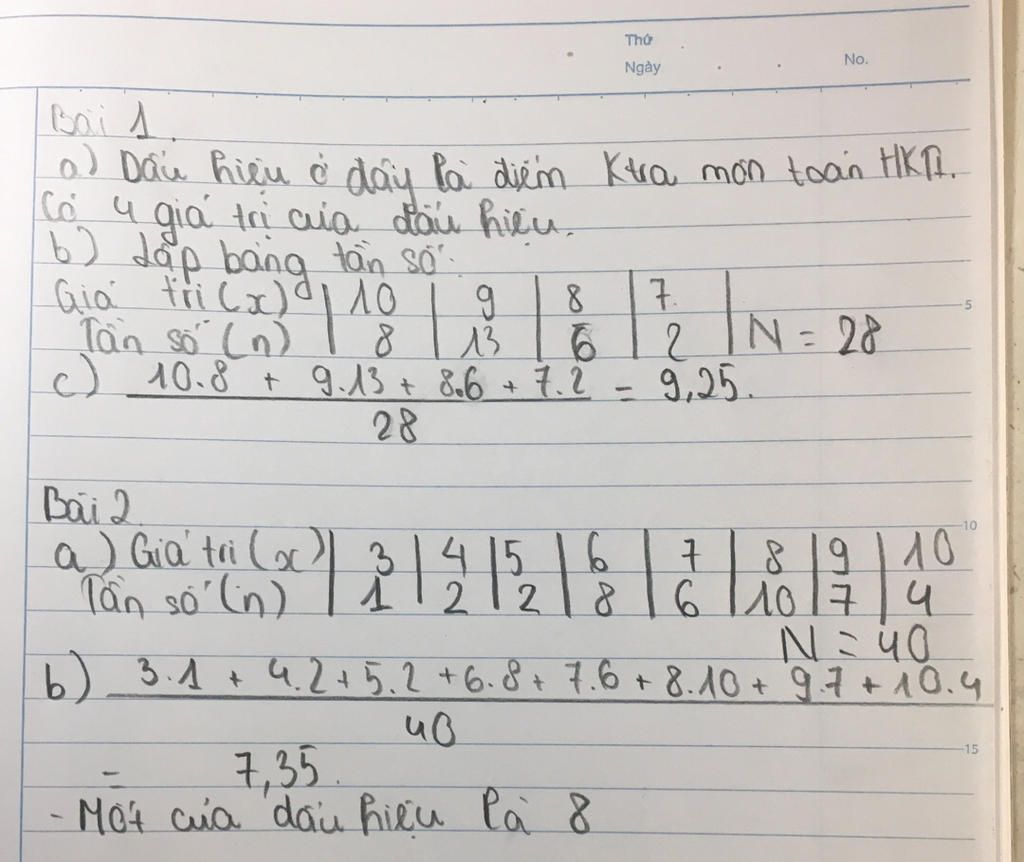 Thứ
Ngày
No.
Bài 1.
a) Dấu hiệu ở đây là điểm Ktra môn toán HKII.
Có 4 giá trị của dấu hiệu.
b) Lập bảng tần số:
Giá trị (x) | 10 | 9 | 8 | 7 |
Tần số (n) | 8 | 13 | 6 | 2 | N = 28
5
c) 10.8 + 9.13 + 8.6 + 7.2 = 9,25.
28
Bài 2
10
a) Giá trị (x) | 3 | 4 | 5 | 6 | 7 | 8 | 9 | 10
Tần số (n) | 1 | 2 | 2 | 8 | 6 | 10 | 7 | 4
N = 40
b) 3.1 + 4.2 + 5.2 + 6.8 + 7.6 + 8.10 + 9.7 + 10.4
40
15
= 7,35.
- Mốt của dấu hiệu là 8